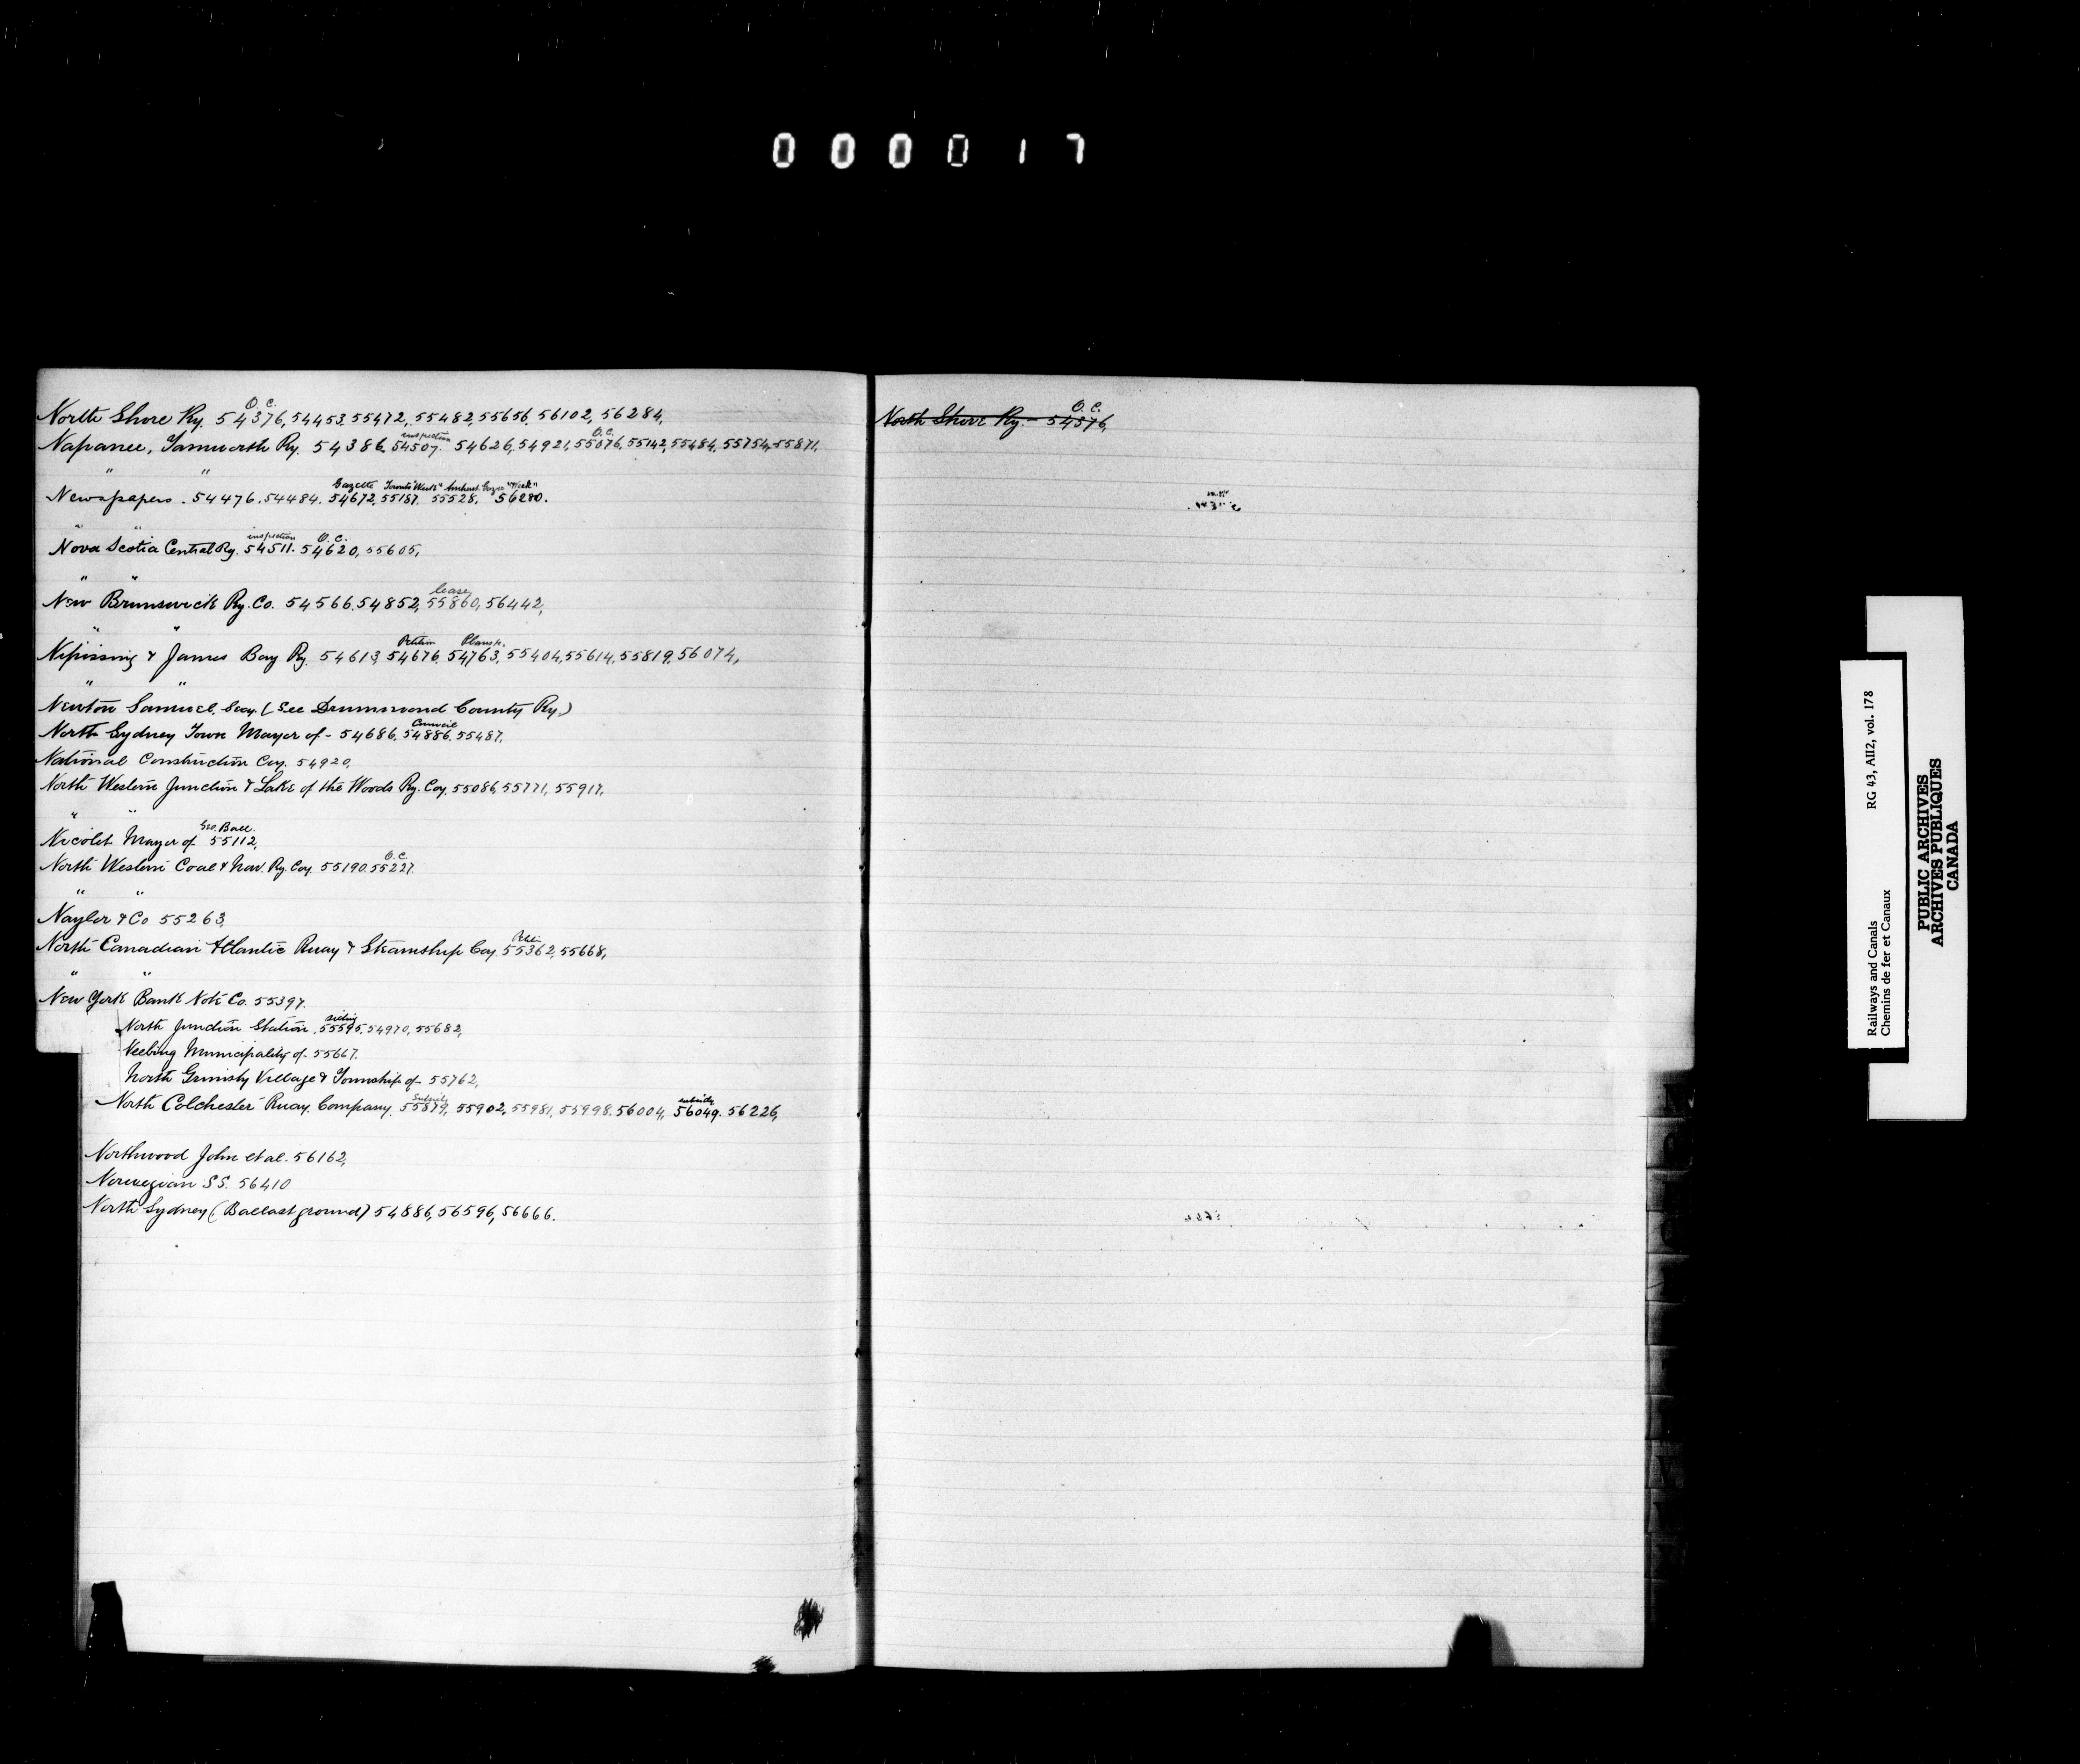 000017
O.C.
North Shore Ry. 54376, 54453, 55472, 55482, 55656, 56102, 56284,
inspection O.C.
Napanee, Tamworth Ry. 54386. 54507. 54626, 54921, 55076, 55142, 55484, 55754, 55871,
" "
Gazette Toronto "Week" Amherst Gazee "Week"
Newspapers. 54476. 54484. 54672, 55187, 55528, 56280.
" "
inspection O.C.
Nova Scotia Central Ry. 54511. 54620, 55605,
" "
lease
New Brunswick Ry. Co. 54566. 54852, 55860, 56442,
" "
Petition Plans &c.
Nipissing & James Bay Ry. 54613, 54676, 54763, 55404, 55614, 55819, 56074,
" "
Newton Samuel, Secy. (See Drummond County Ry.)
Council
North Sydney Town Mayor of - 54686, 54886, 55487,
National Construction Coy. 54920,
North Western Junction & Lake of the Woods Ry. Coy. 55086, 55771, 55917,
" "
Geo. Ball.
Nicolet Mayor of 55112,
O.C.
North Western Coal & Nav. Ry. Coy. 55190. 55227.
" "
Nayler & Co 55263,
Petn
North Canadian Atlantic Ruay & Steamship Coy. 55362, 55668,
" "
New York Bank Note Co. 55397.
siding
North Junction Station, 55595, 54970, 55682,
Neebing Municipality of - 55667.
North Grimsby Village & Township of - 55762,
Subsidy subsidy
North Colchester Ruay. Company. 55879, 55902, 55981, 55998. 56004, 56049. 56226,
Northwood John et al. 56162,
Norwegian SS. 56410
North Sydney (Ballast ground) 54886, 56596, 56666.
O.C.
North Shore Ry. - 54376,
Railways and Canals RG 43, AII2, vol. 178
Chemins de fer et Canaux
PUBLIC ARCHIVES
ARCHIVES PUBLIQUES
CANADA